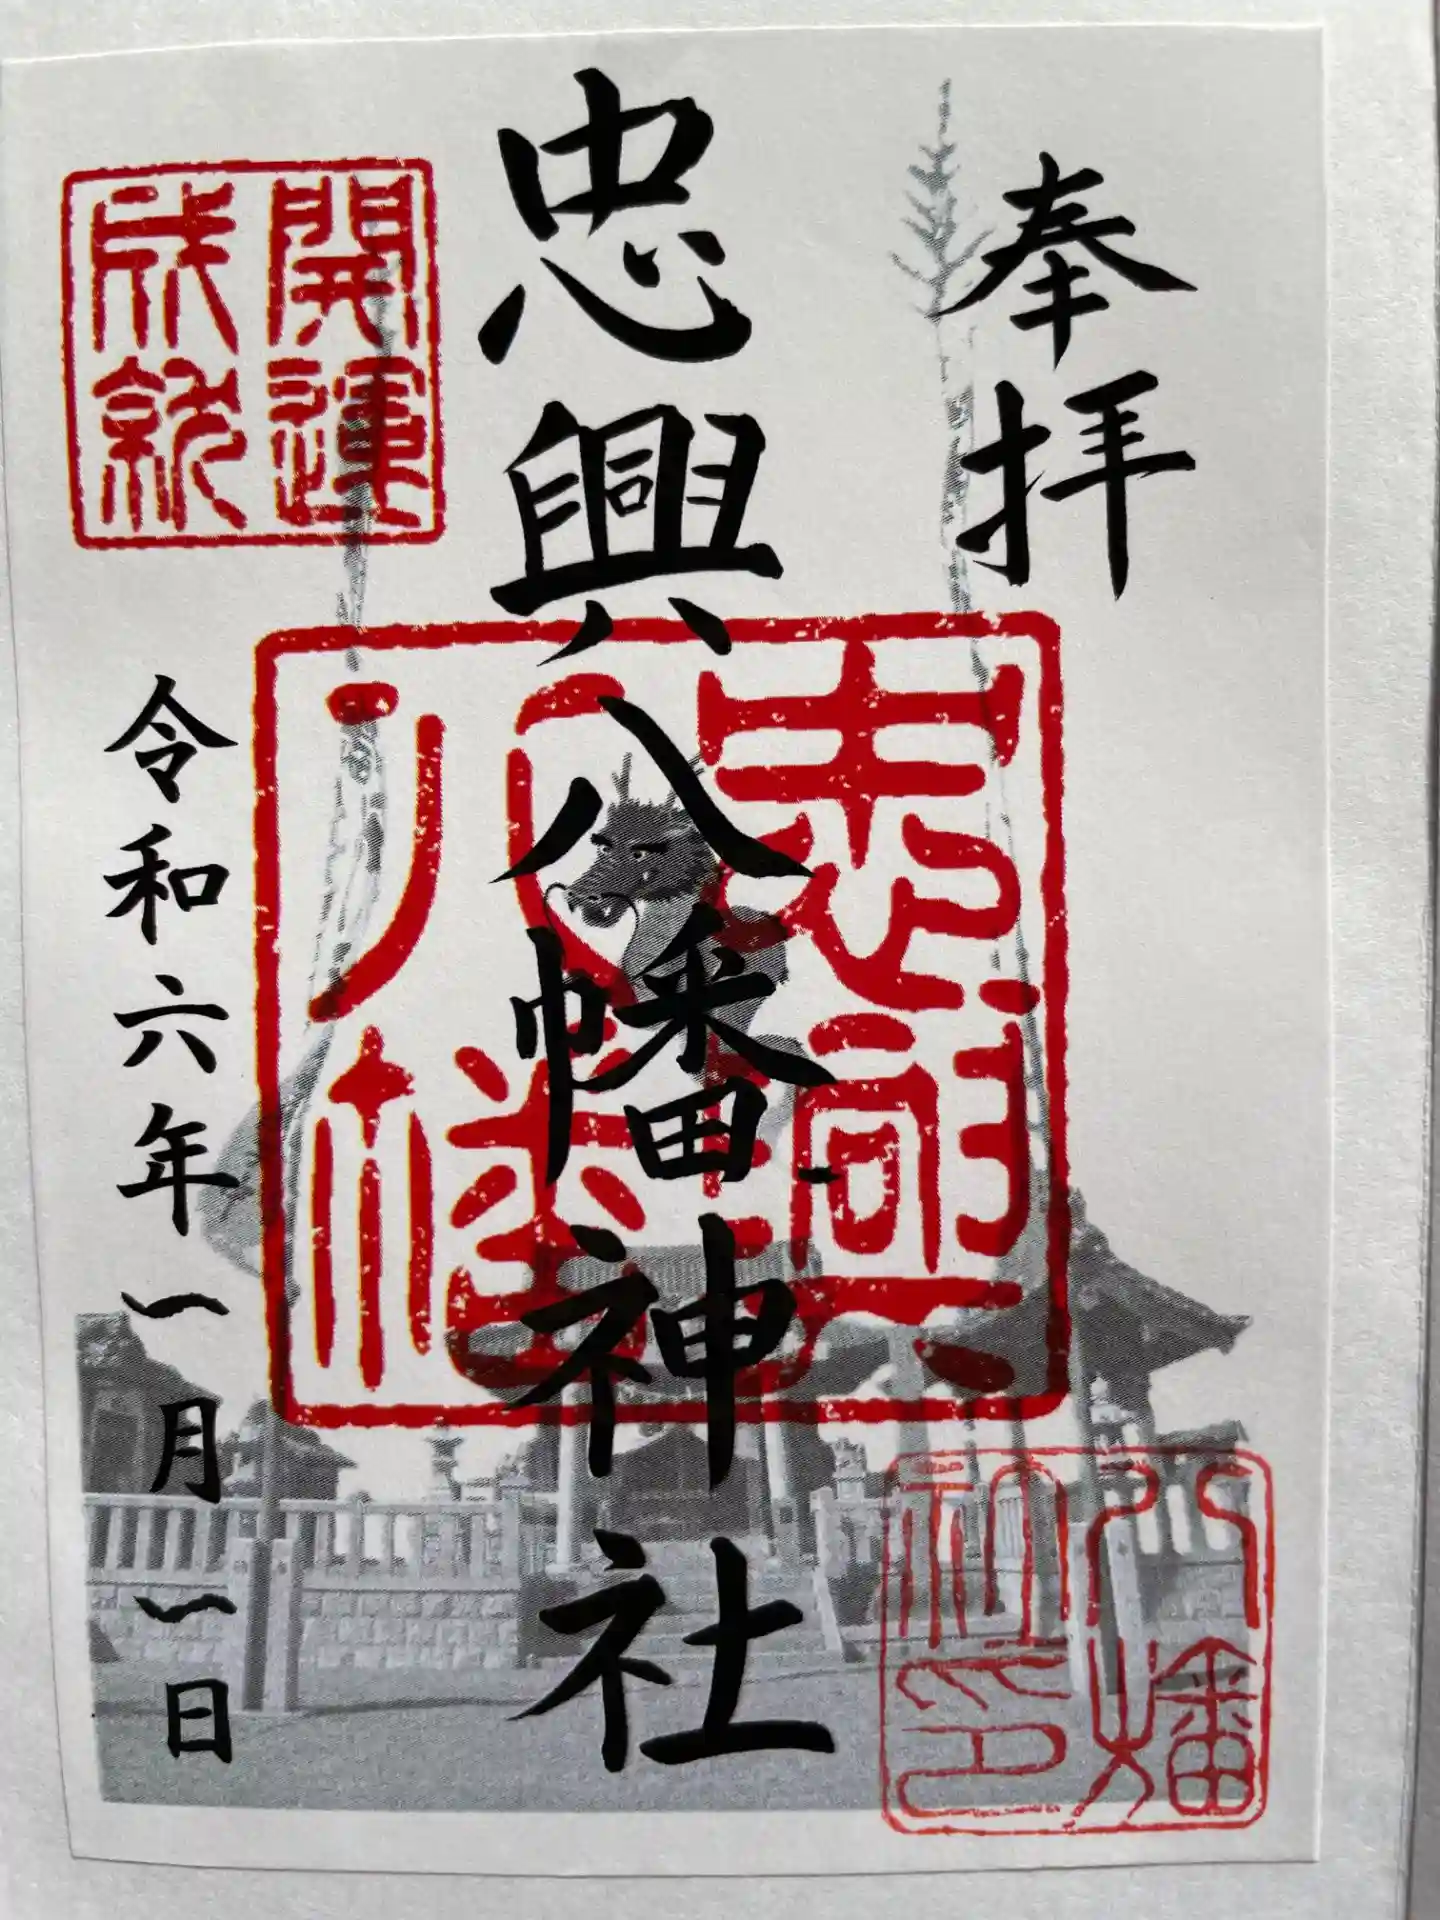 奉拝
忠興八幡神社
開運
成就
忠興
八幡
八幡
令和六年一月一日